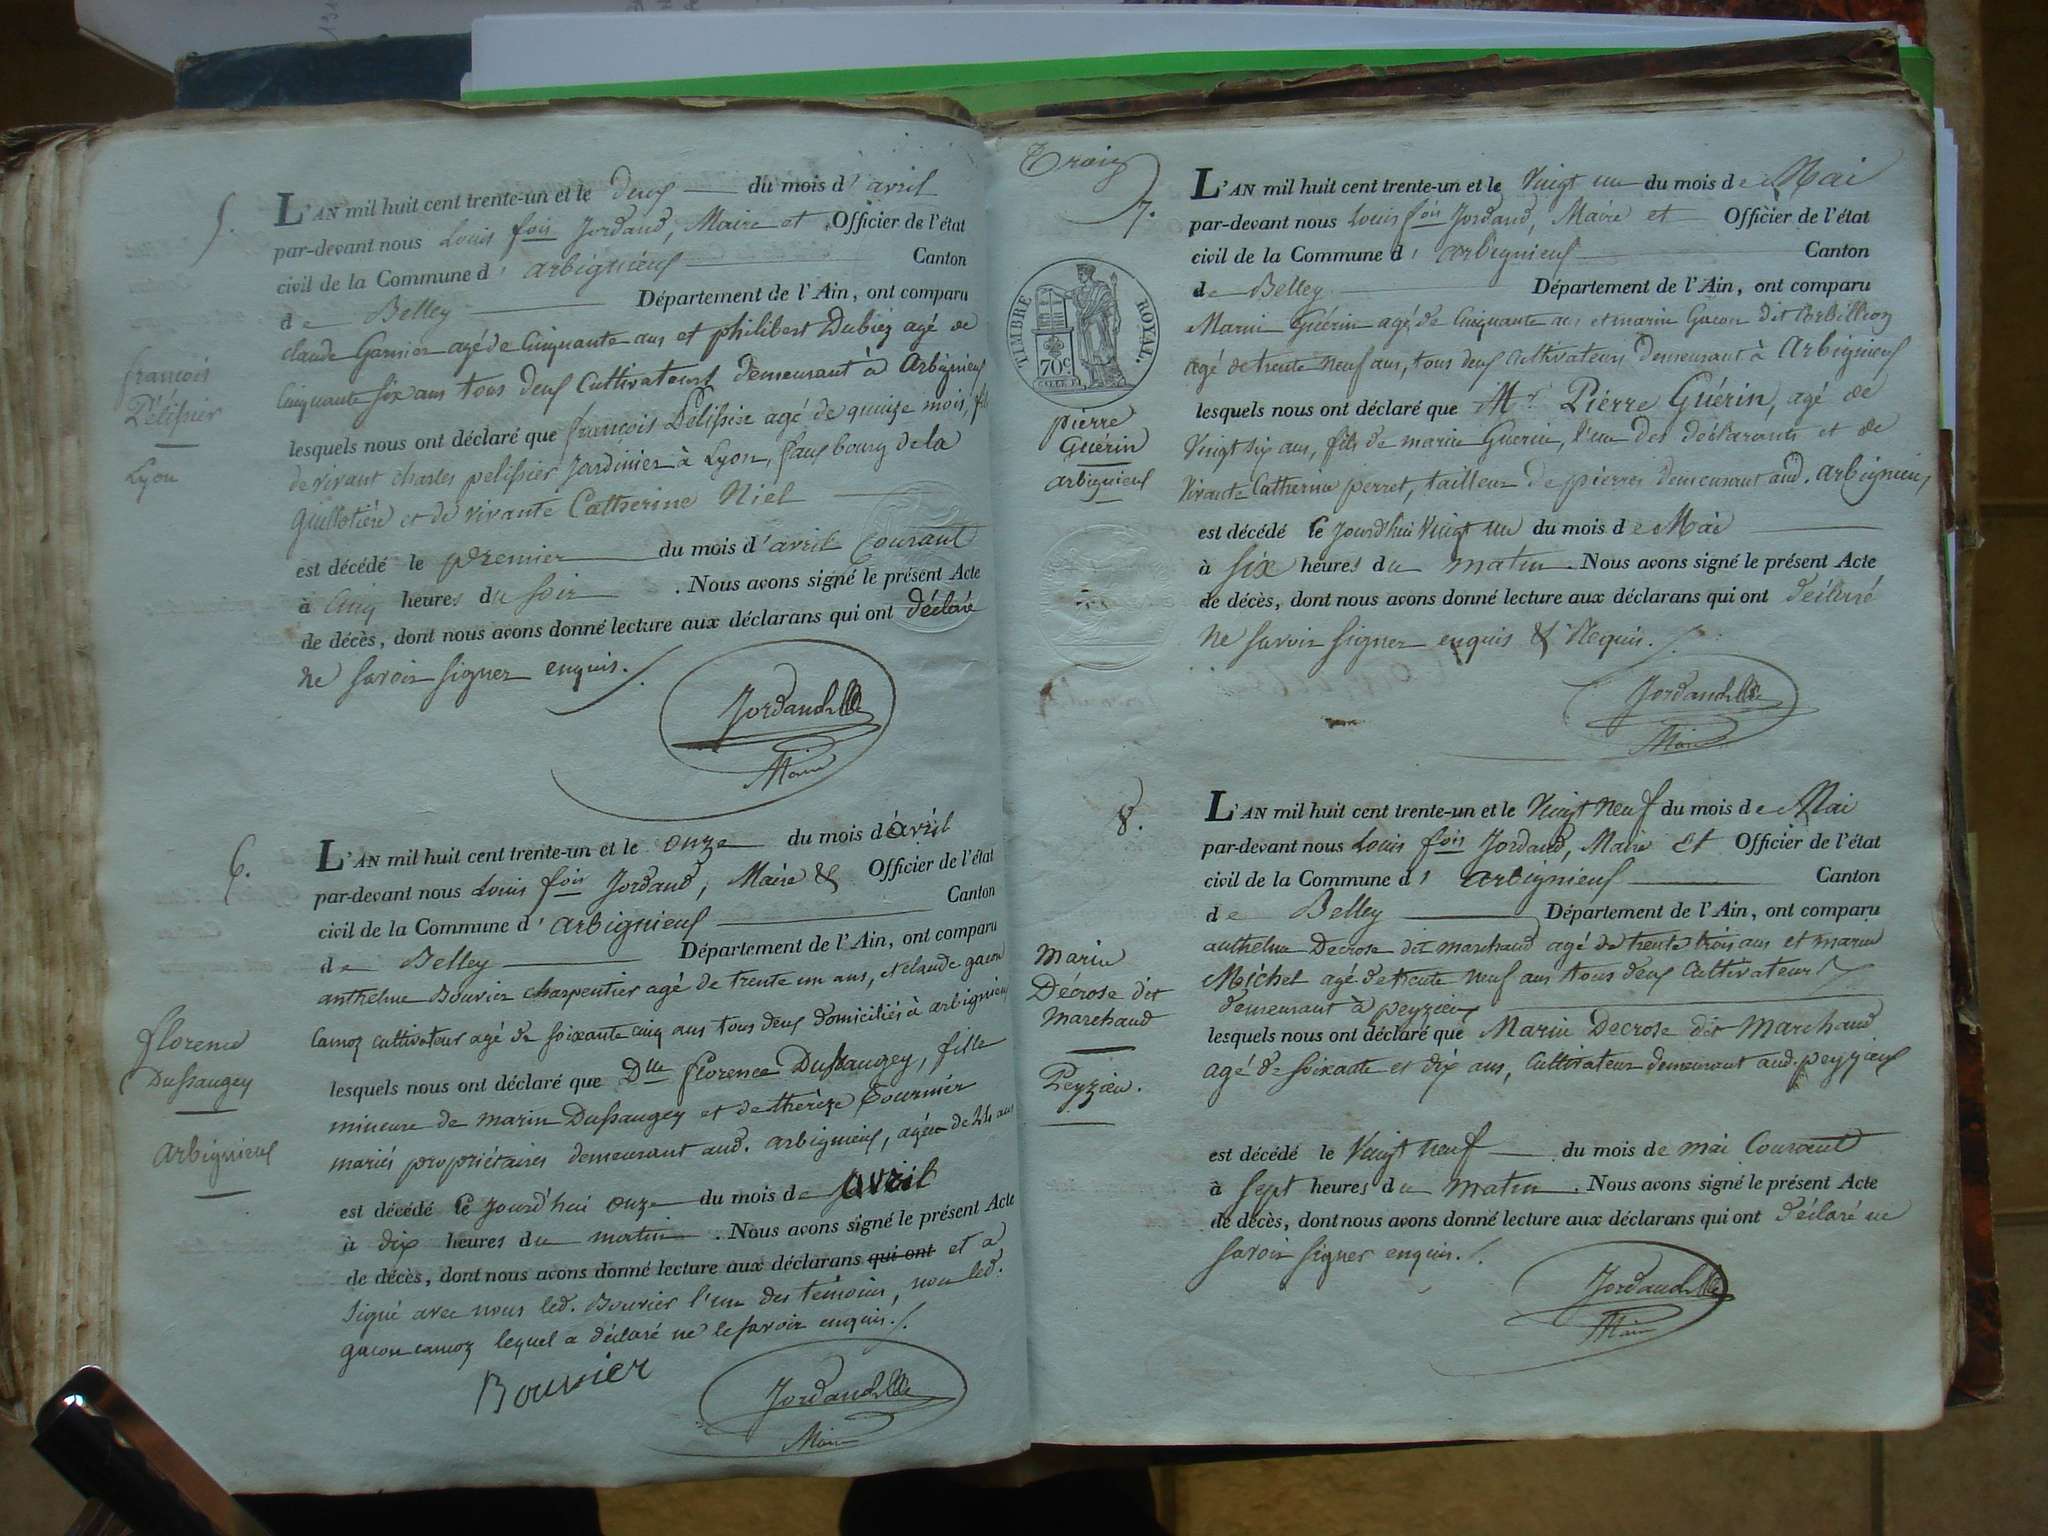 5.
L'AN mil huit cent trente-un et le deux du mois d'avril
par-devant nous Louis fois Jordand, Maire et Officier de l'état
civil de la Commune d'arbignieux Canton
de Belley Département de l'Ain, ont comparu
claude Garnier agé de Cinquante ans et philibert Dubiez agé de
Cinquante six ans tous deux Cultivateurs demeurant à Arbignieux
lesquels nous ont déclaré que françois Pélissier agé de quinze mois, fils
de vivant charles pelissier Jardinier à Lyon, fauxbourg de la
Guillotière et de vivante Catherine Niel
est décédé le premier du mois d'avril Courant
à Cinq heures du soir. Nous avons signé le présent Acte
de décès, dont nous avons donné lecture aux déclarans qui ont déclaré
ne savoir signer enquis.
françois
Pélissier
Lyon
Jordand
Maire
6.
L'AN mil huit cent trente-un et le onze du mois d'avril
par-devant nous Louis fois Jordand, Maire & Officier de l'état
civil de la Commune d'arbignieux Canton
de Belley Département de l'Ain, ont comparu
anthelme Bouvier charpentier agé de trente un ans, et claude gacon
Camoz cultivateur agé de soixante cinq ans tous deux domiciliés à arbignieux
lesquels nous ont déclaré que Dlle florence Dussaugey, fille
mineure de marin Dussaugey et de thérèze fournier
mariés propriétaires demeurant aud. arbignieux, agée de 24 ans
est décédé le jourd'hui onze du mois de avril
à dix heures du matin. Nous avons signé le présent Acte
de décès, dont nous avons donné lecture aux déclarans qui ont et a
signé avec nous led. Bouvier l'un des témoins, non led.
gacon camoz lequel a déclaré ne le savoir enquis.
florence
Dussaugey
arbignieux
Bouvier
Jordand
Maire
Troiz
7.
L'AN mil huit cent trente-un et le Vingt un du mois de Mai
par-devant nous Louis fois Jordand, Maire et Officier de l'état
civil de la Commune d'arbignieux Canton
de Belley Département de l'Ain, ont comparu
Marin Guérin agé de Cinquante ans et marin Gacon dit Corbillion
agé de trente neuf ans, tous deux Cultivateurs demeurant à Arbignieux
lesquels nous ont déclaré que Mr Pierre Guérin, agé de
Vingt six ans, fils de marin Guerin, l'un des déclarants et de
vivante Catherine perret, tailleur de pierres demeurant aud. arbignieux,
est décédé le jourd'hui Vingt un du mois de Mai
à six heures du matin. Nous avons signé le présent Acte
de décès, dont nous avons donné lecture aux déclarans qui ont déclaré
ne savoir signer enquis & Requis.
TIMBRE ROYAL.
70c
pierre
Guérin
arbignieux
Jordand
Maire
8.
L'AN mil huit cent trente-un et le Vingt neuf du mois de Mai
par-devant nous Louis fois Jordand, Maire et Officier de l'état
civil de la Commune d'arbignieux Canton
de Belley Département de l'Ain, ont comparu
anthelme Decrose dit marchand agé de trente trois ans et marin
Michel agé de trente neuf ans tous deux Cultivateurs
demeurant à peyzieux
lesquels nous ont déclaré que Marin Decrose dit Marchand
agé de soixante et dix ans, Cultivateur demeurant aud. peyzieux
est décédé le Vingt neuf du mois de mai Courant
à sept heures du matin. Nous avons signé le présent Acte
de décès, dont nous avons donné lecture aux déclarans qui ont déclaré ne
savoir signer enquis.
Marin
Décrose dit
Marchand
Peyzieu.
Jordand
Maire